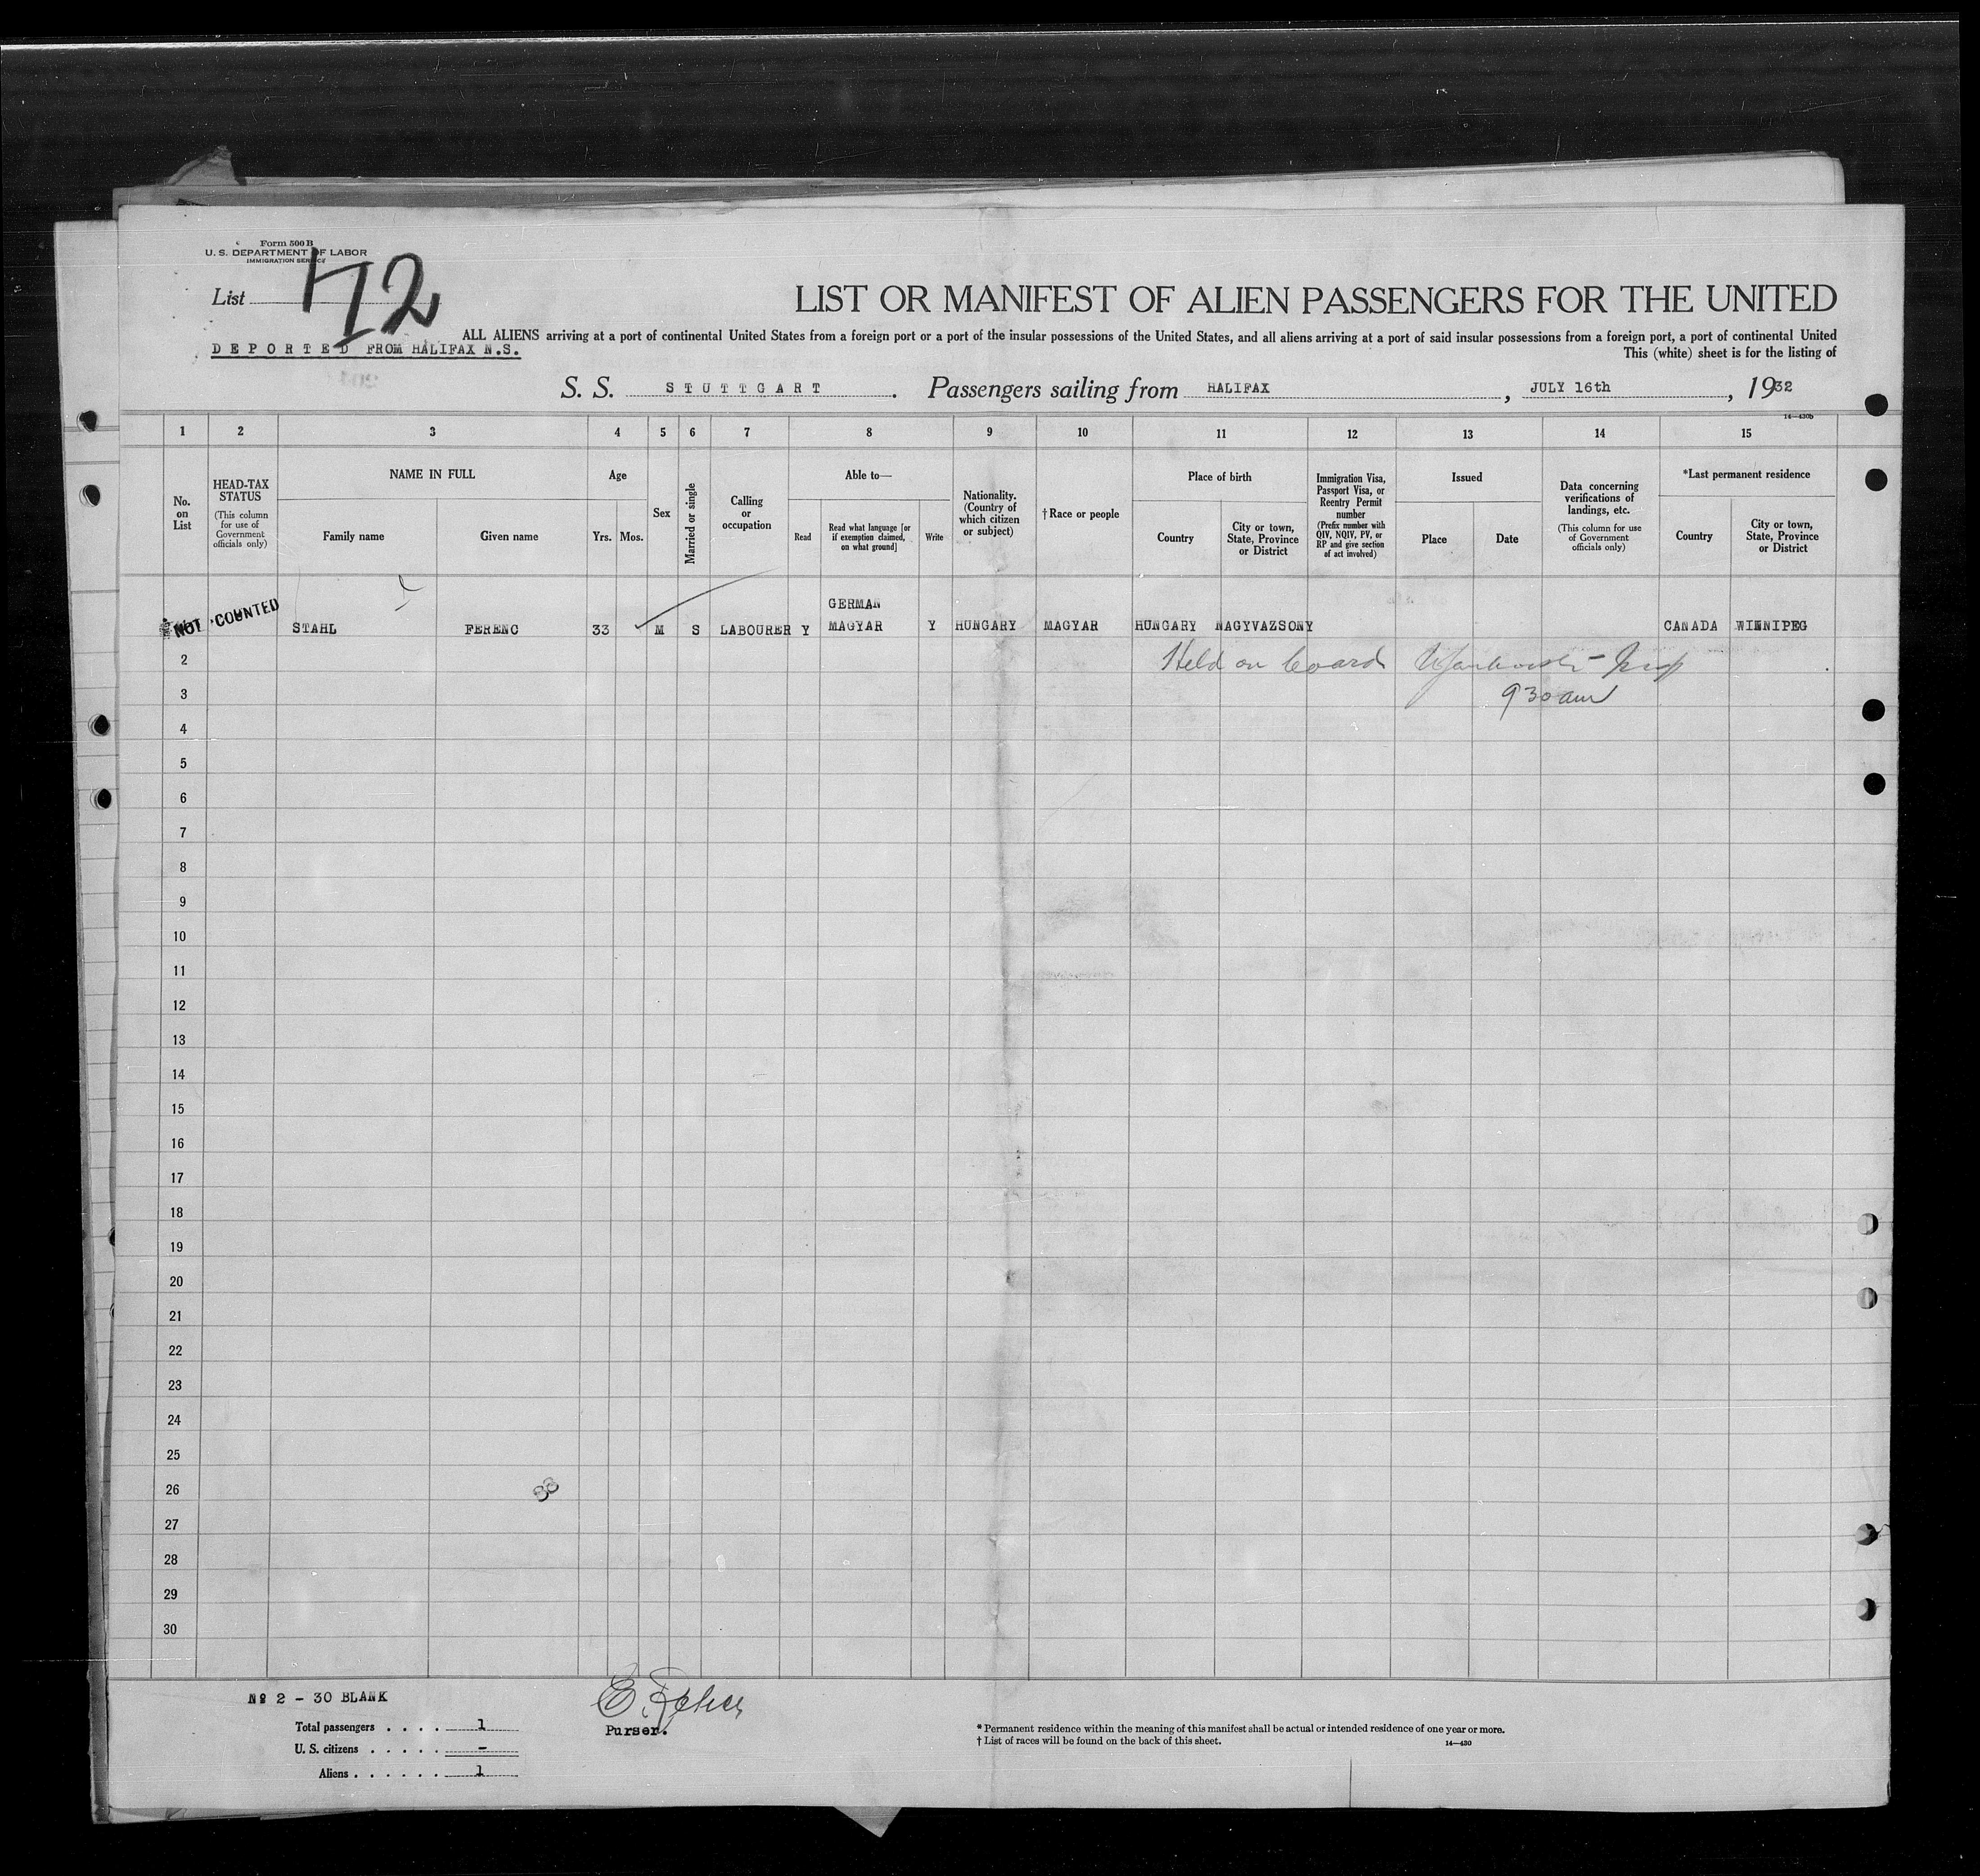 Form 500 B
U. S. DEPARTMENT OF LABOR
IMMIGRATION SERVICE
List 72
LIST OR MANIFEST OF ALIEN PASSENGERS FOR THE UNITED
ALL ALIENS arriving at a port of continental United States from a foreign port or a port of the insular possessions of the United States, and all aliens arriving at a port of said insular possessions from a foreign port, a port of continental United
DEPORTED FROM HALIFAX N.S.
This (white) sheet is for the listing of
S. S. STUTTGART. Passengers sailing from HALIFAX, JULY 16th, 1932
14—430b
1 2 3 4 5 6 7 8 9 10 11 12 13 14 15
No. on List
HEAD-TAX STATUS (This column for use of Government officials only)
NAME IN FULL
Family name Given name
Age
Yrs. Mos.
Sex
Married or single
Calling or occupation
Able to—
Read Read what language [or if exemption claimed, on what ground] Write
Nationality. (Country of which citizen or subject)
†Race or people
Place of birth
Country City or town, State, Province or District
Immigration Visa, Passport Visa, or Reentry Permit number (Prefix number with QIV, NQIV, PV, or RP and give section of act involved)
Issued
Place Date
Data concerning verifications of landings, etc. (This column for use of Government officials only)
*Last permanent residence
Country City or town, State, Province or District
GERMAN
NOT COUNTED STAHL FERENC 33 M S LABOURER Y MAGYAR Y HUNGARY MAGYAR HUNGARY NAGYVAZSONY CANADA WINNIPEG
2 Held on board Insp
3 9 30 am
4
5
6
7
8
9
10
11
12
13
14
15
16
17
18
19
20
21
22
23
24
25
26 33
27
28
29
30
No 2 - 30 BLANK
Total passengers . . . . 1
U. S. citizens . . . . . -
Aliens . . . . . . 1
Purser.
* Permanent residence within the meaning of this manifest shall be actual or intended residence of one year or more.
† List of races will be found on the back of this sheet.
14—430